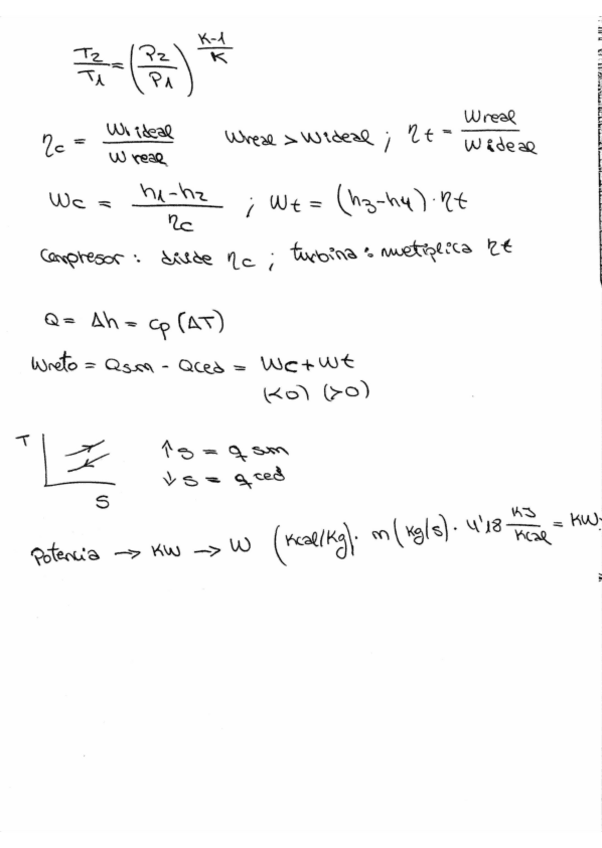 T2/T1 = (P2/P1)^(K-1/K)
ηc = Wideal/Wreal   Wreal > Wideal ; ηt = Wreal/Wideal
Wc = h1-h2/ηc ; Wt = (h3-h4)·ηt
Compresor: divide ηc ; turbina: multiplica ηt
Q = Δh = cp(ΔT)
Wneto = Qsm - Qced = Wc + Wt
(<0) (>0)
T ↑s = q sm
↓s = q ced
S
Potencia → KW → W (Kcal/Kg)· m (Kg/s) · 4'18 KJ/Kcal = KW